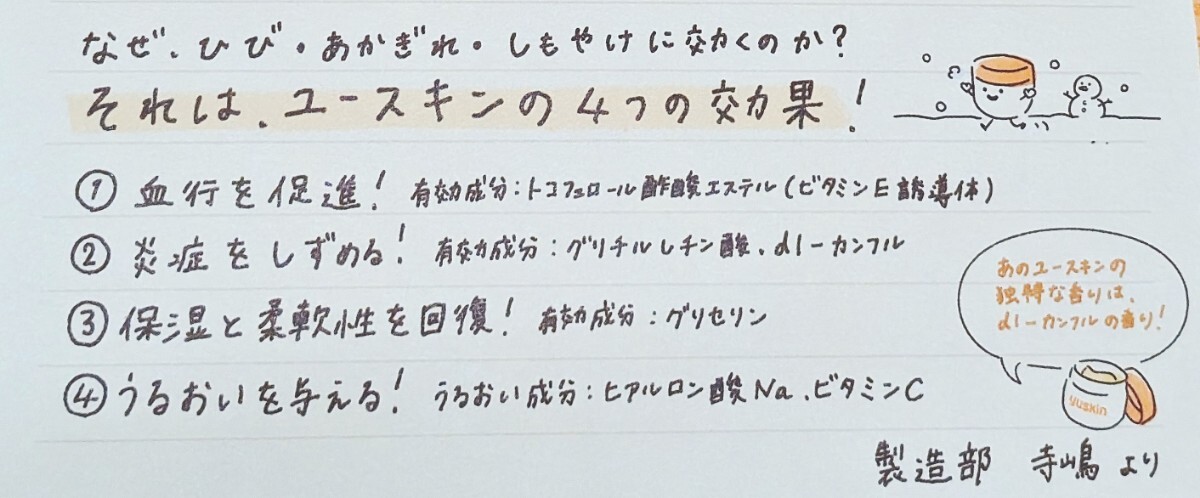 なぜ、ひび・あかぎれ・しもやけに効くのか?
それは、ユースキンの4つの効果!
① 血行を促進! 有効成分:トコフェロール酢酸エステル(ビタミンE誘導体)
② 炎症をしずめる! 有効成分:グリチルレチン酸、dl-カンフル
③ 保湿と柔軟性を回復! 有効成分:グリセリン
④ うるおいを与える! うるおい成分:ヒアルロン酸Na、ビタミンC
あのユースキンの
独特な香りは、
dl-カンフルの香り!
yuskin
製造部 寺嶋より